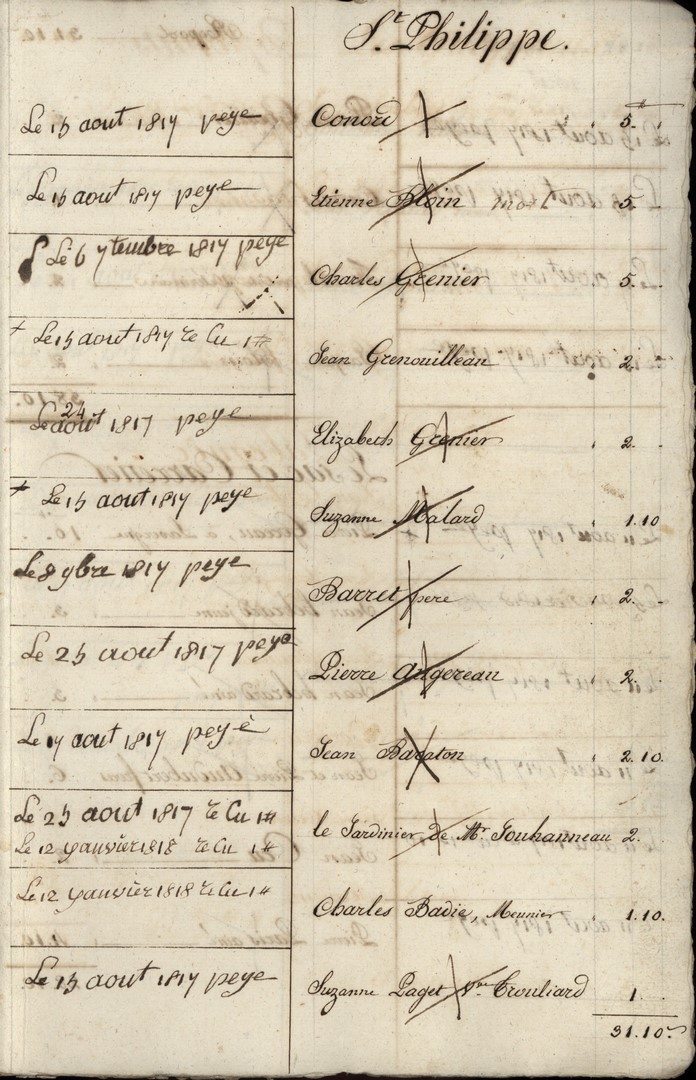 St. Philippe.
Le 15 aout 1817 peye Conord 5.
Le 15 aout 1817 peye Etienne Bloin mort 5.
Le 6 7tembre 1817 peye Charles Grenier 5.
+ Le 15 aout 1817 re Cu 1# Jean Grenouilleau 2.
Le 24 août 1817 peye Elizabeth Grenier 2.
+ Le 15 aout 1817 peye Suzanne Malard 1.10
Le 8 9bre 1817 peye Barret pere 2.
Le 25 aout 1817 peye Pierre Augereau 2.
Le 17 aout 1817 peyè Jean Baraton 2.10.
Le 25 aout 1817 re Cu 1# le Jardinier de Mr. Jouhanneau 2.
Le 12 yanvier 1818 re Cu 1#
Le 12 yanvier 1818 re Cu 1# Charles Badie, Meunier 1.10.
Le 15 aout 1817 peye Suzanne Paget Vve. Trouliard 1.
31.10.